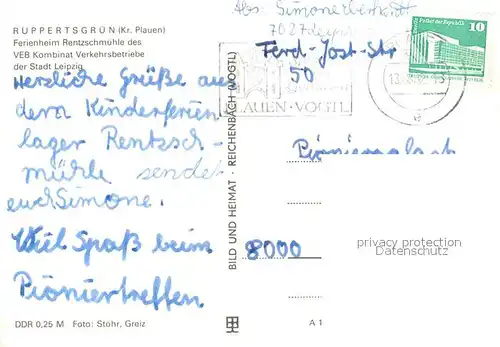 RUPPERTSGRÜN (Kr. Plauen)
Ferienheim Rentzschmühle des
VEB Kombinat Verkehrsbetriebe
der Stadt Leipzig
Herzliche Grüße aus
dem Kinderferien
lager Rentzsch-
mühle sendet
euch Simone.
Viel Spaß beim
Pioniertreffen
DDR 0,25 M Foto: Stöhr, Greiz
BILD UND HEIMAT · REICHENBACH (VOGTL)
Abs: Simone
7027 Leipzig
Ferd-Jost-Str
50
PLAUEN · VOGTL
Palast der Republik
10
8000
privacy protection
Datenschutz
A 1